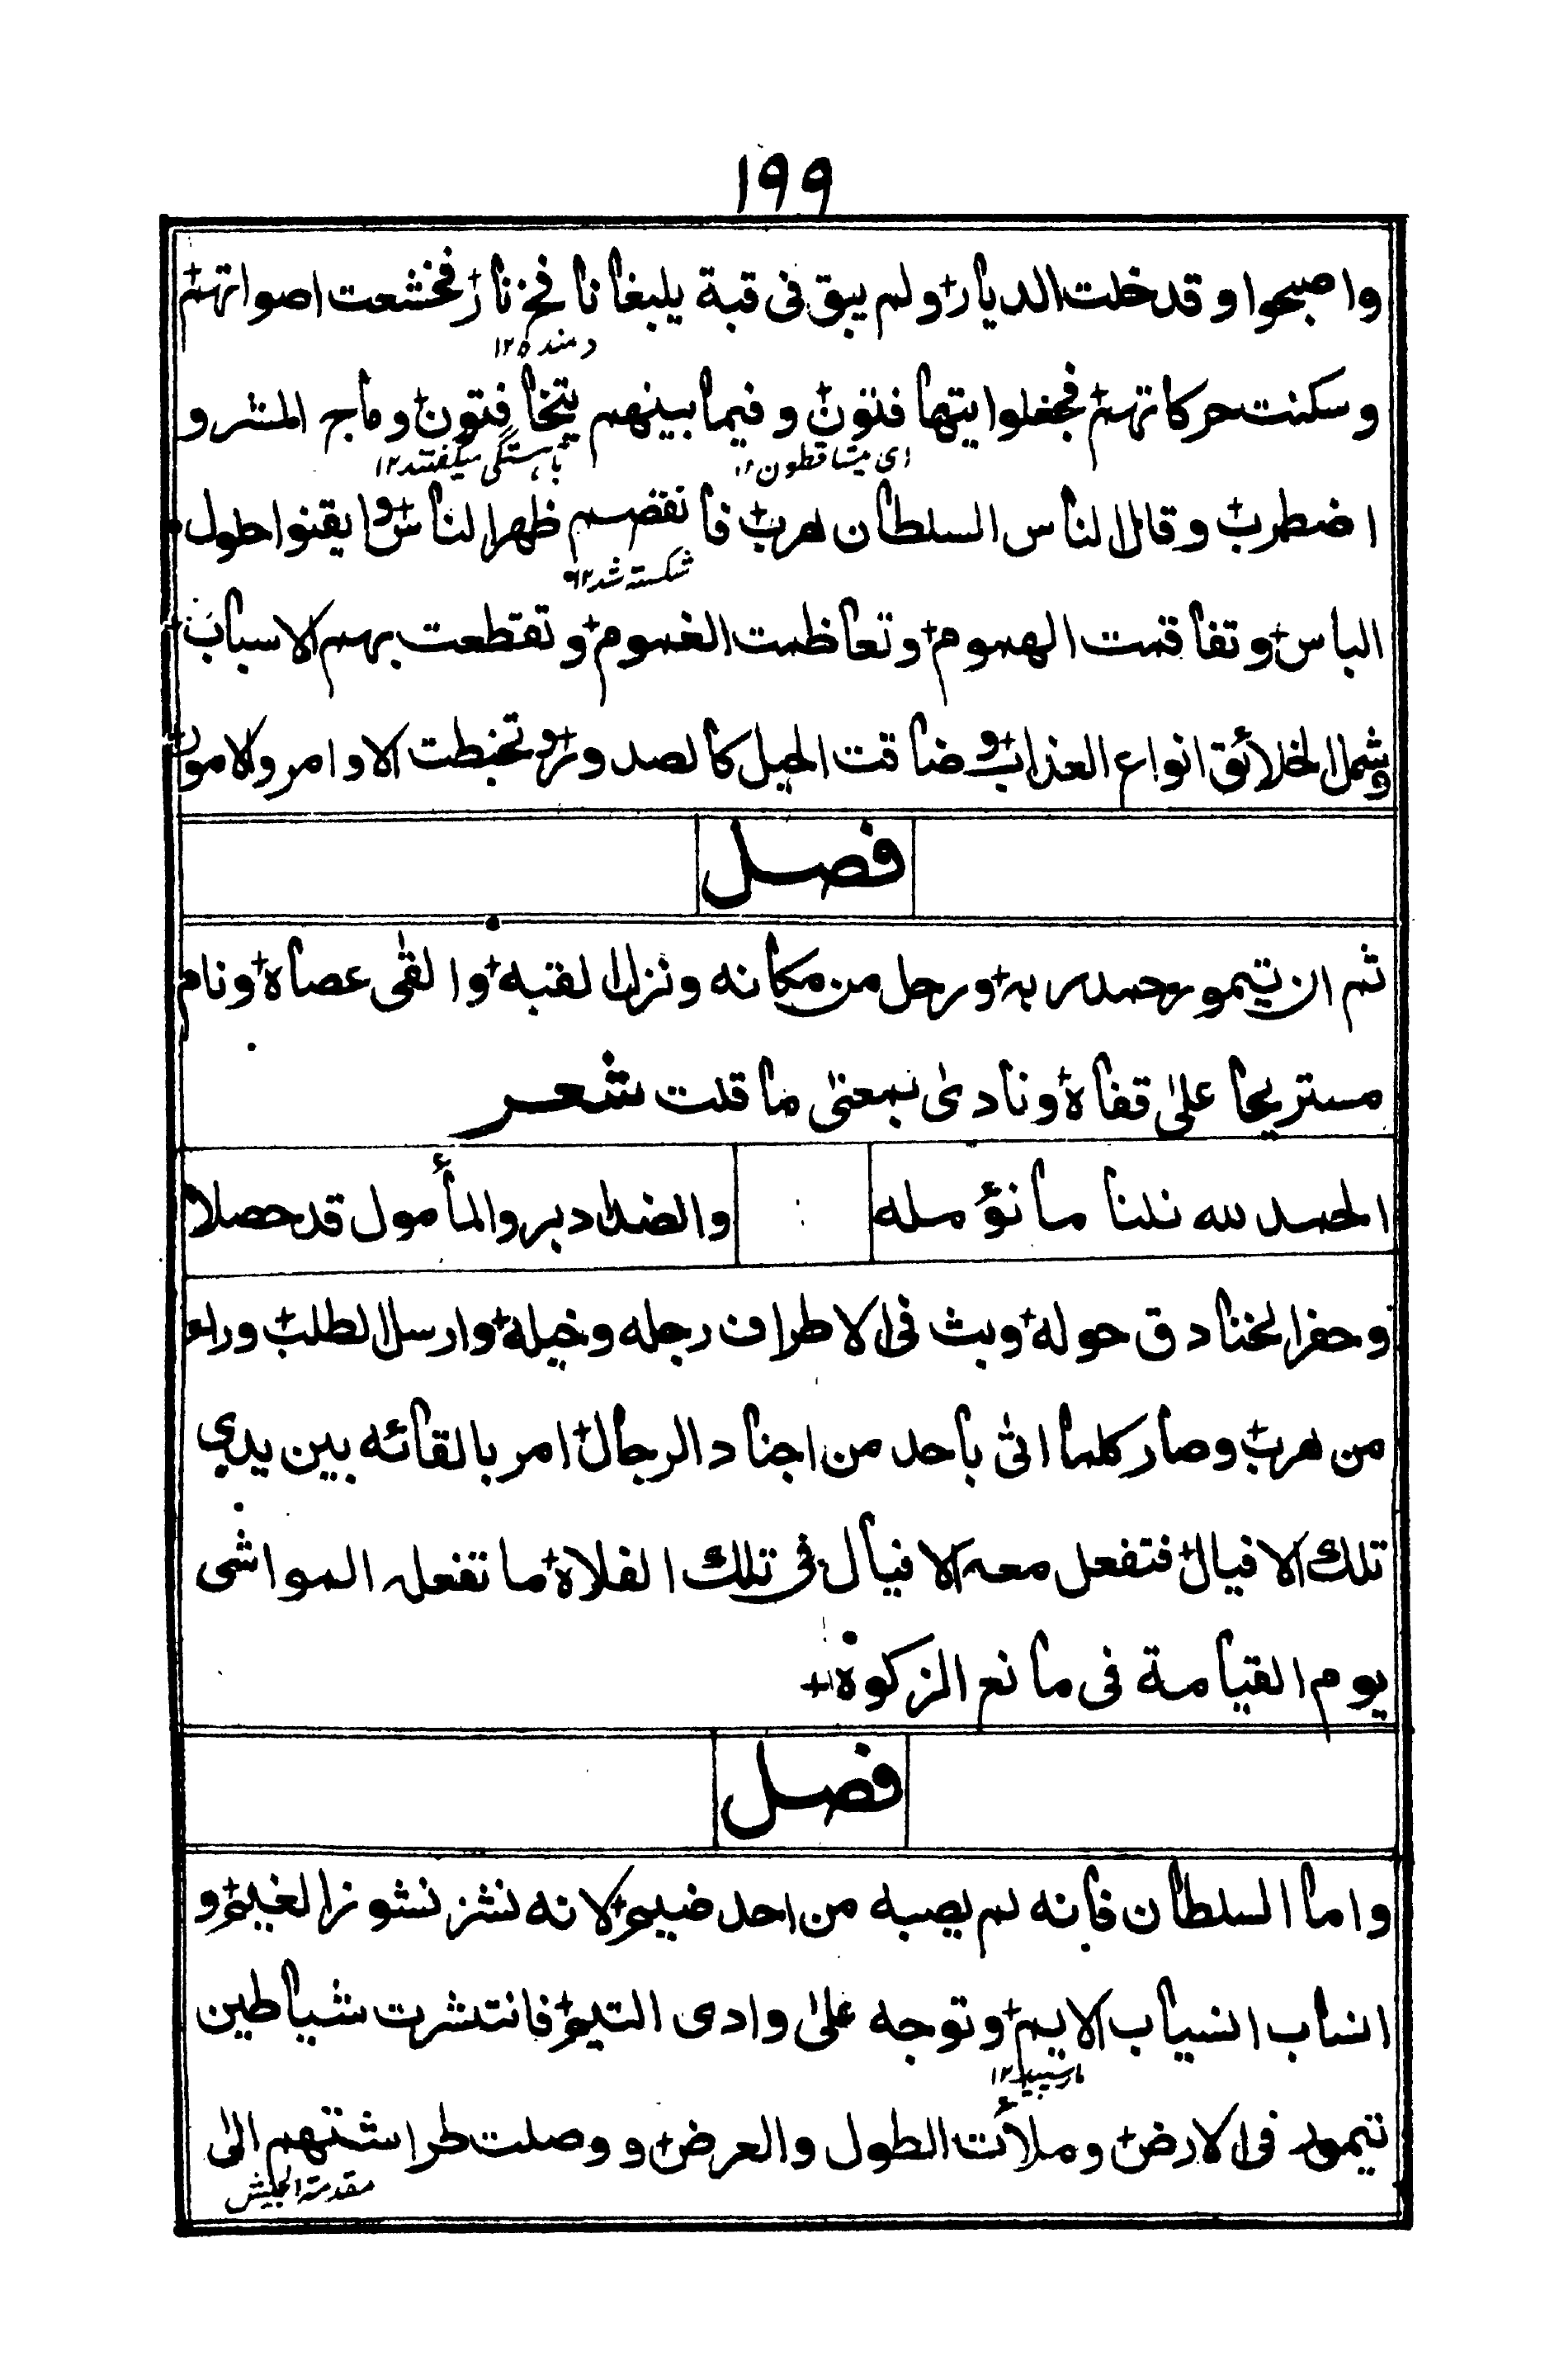 ١٩٩
واصبحوا وقد خلت الديار+ ولم يبق فى قبة يلبغا نافخ نار+ فخشعت اصواتهم+
دمنده ١٢
وسكنت حركاتهم+ فجعلوا يتهافتون+ وفيما بينهم يتخافتون+ وماج المنثر و
اى يتساقطون ١٢
بآهستگى ميگفتند ١٢
اضطرب+ وقال الناس السلطان هرب+ فانقصم ظهر الناس+ وايقنوا حلول
شكسته شد ١٢
الباس+ وتفاقمت الهموم+ وتعاظمت الغموم+ وتقطعت بهم الاسباب+
وشمل الخلائق انواع العذاب+ وضاقت الحيل كالصدور+ وتخبطت الاوامر والامور+
فصل
ثم ان تيمور حمد ربه+ ورحل من مكانه ونزل القبه+ والقى عصاه+ ونام
مستريحا على قفاه+ ونادى بمعنى ما قلت شعر
الحمد لله نلنا ما نؤمله
والضد ادبر والمأمول قد حصلا
وحفر الخنادق حوله+ وبث فى الاطراف رجله وخيله+ وارسل الطلب+ وراء
من هرب+ وصار كلما اتى باحد من اجناد الرجال+ امر بالقائه بين يدي
تلك الافيال+ فتفعل معه الافيال فى تلك الفلاة+ ما تفعله المواشى
يوم القيامة فى مانع الزكوة+
فصل
واما السلطان فانه لم يصبه من احد ضيم+ لانه نشز نشوز الغيم+ و
انساب انسياب الايم+ وتوجه على وادى التيم+ فانتشرت شياطين
مار سپيد ١٢
تيمور فى الارض+ وملأت الطول والعرض+ ووصلت طراشتهم الى
مقدمة الجيش